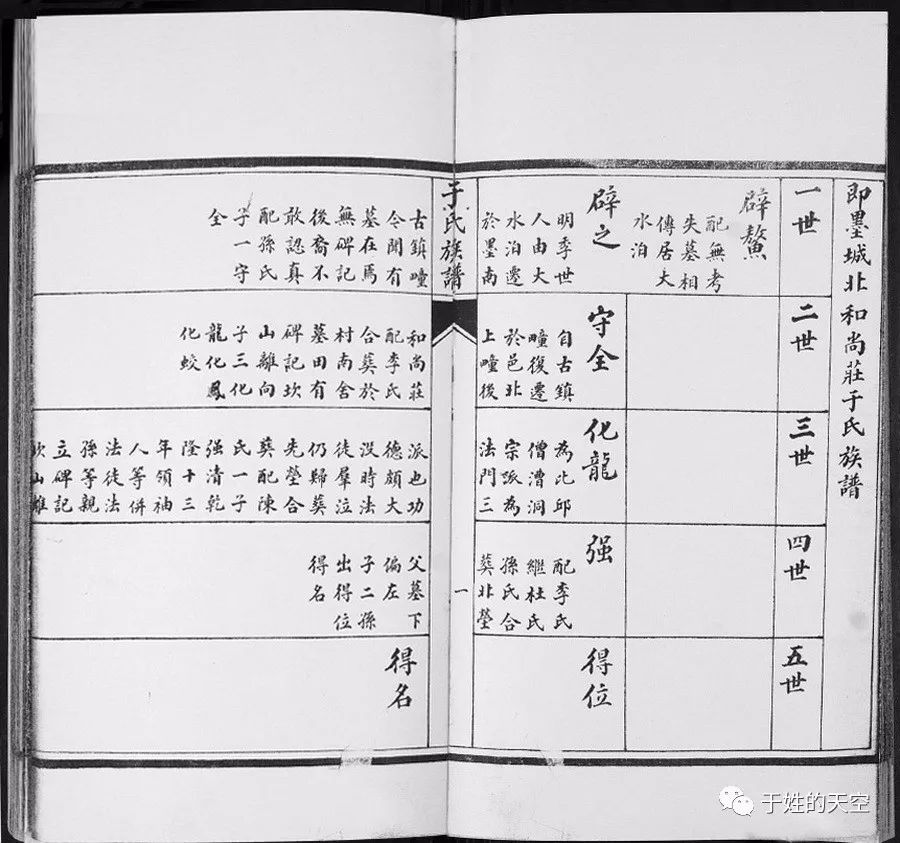 即墨城北和尚莊于氏族譜
一世
辟鰲
配無考
失墓相
傳居大
水泊
辟之
明季世
人由大
水泊遷
於墨南
古鎮疃
令聞有
墓在焉
無碑記
後裔不
敢認真
配孫氏
子一守
全
二世
守全
自古鎮
疃復遷
於邑北
上疃後
和尚莊
配李氏
合葬於
村南舍
墓田有
碑記坎
山離向
子三化
龍化鳳
化蛟
三世
化龍
為比邱
僧漕洞
宗派為
法門三
派也功
德頗大
没時法
徒羣泣
仍歸葬
先塋合
葬配陳
氏一子
强清乾
隆十三
年領袖
人等併
法徒法
孫等親
立碑記
坎山離
四世
强
配李氏
繼杜氏
孫氏合
葬北塋
父墓下
偏左
子二孫
出得位
得名
五世
得位
得名
于氏族譜
一
于姓的天空